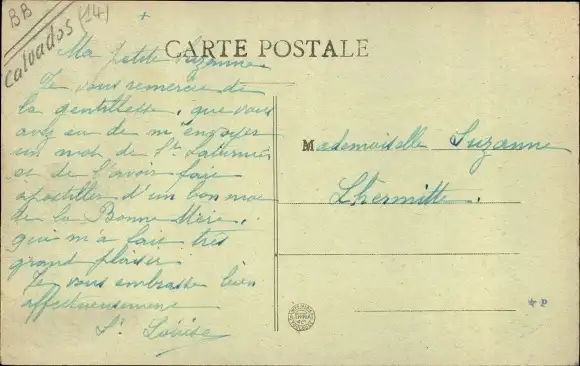 BB
Calvados (14)
CARTE POSTALE
Ma petite Suzanne
Je vous remercie de
la gentillesse, que vous
avez eu de m'envoyer
un mot de St Saturnin
et de l'avoir fait
apostiller d'un bon mot
de la Bonne Mère,
qui m'a fait très
grand plaisir
Je vous embrasse bien
affectueusement
Sr Louise
Mademoiselle Suzanne
Lhermitte.